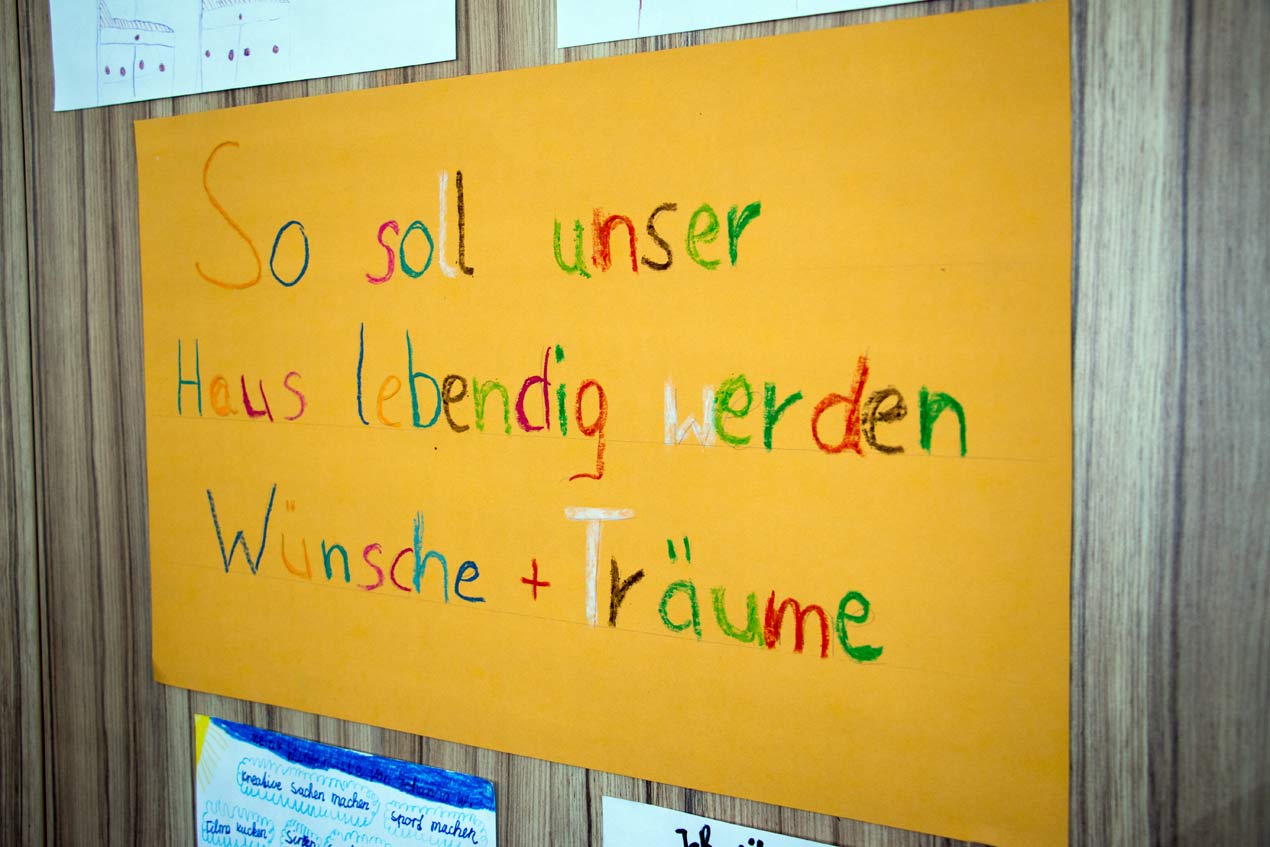 So soll unser
Haus lebendig werden
Wünsche + Träume
kreative Sachen machen
Sport machen
Films kucken